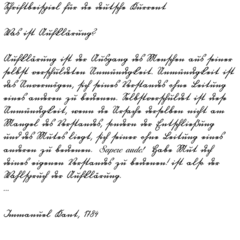 Schriftbeispiel für die deutsche Kurrent
Was ist Aufklärung?
Aufklärung ist der Ausgang des Menschen aus seiner
selbst verschuldeten Unmündigkeit. Unmündigkeit ist
das Unvermögen, sich seines Verstandes ohne Leitung
eines anderen zu bedienen. Selbstverschuldet ist diese
Unmündigkeit, wenn die Ursache derselben nicht am
Mangel des Verstandes, sondern der Entschließung
und des Mutes liegt, sich seiner ohne Leitung eines
anderen zu bedienen. Sapere aude! Habe Mut dich
deines eigenen Verstandes zu bedienen! ist also der
Wahlspruch der Aufklärung.
...
Immanuel Kant, 1784